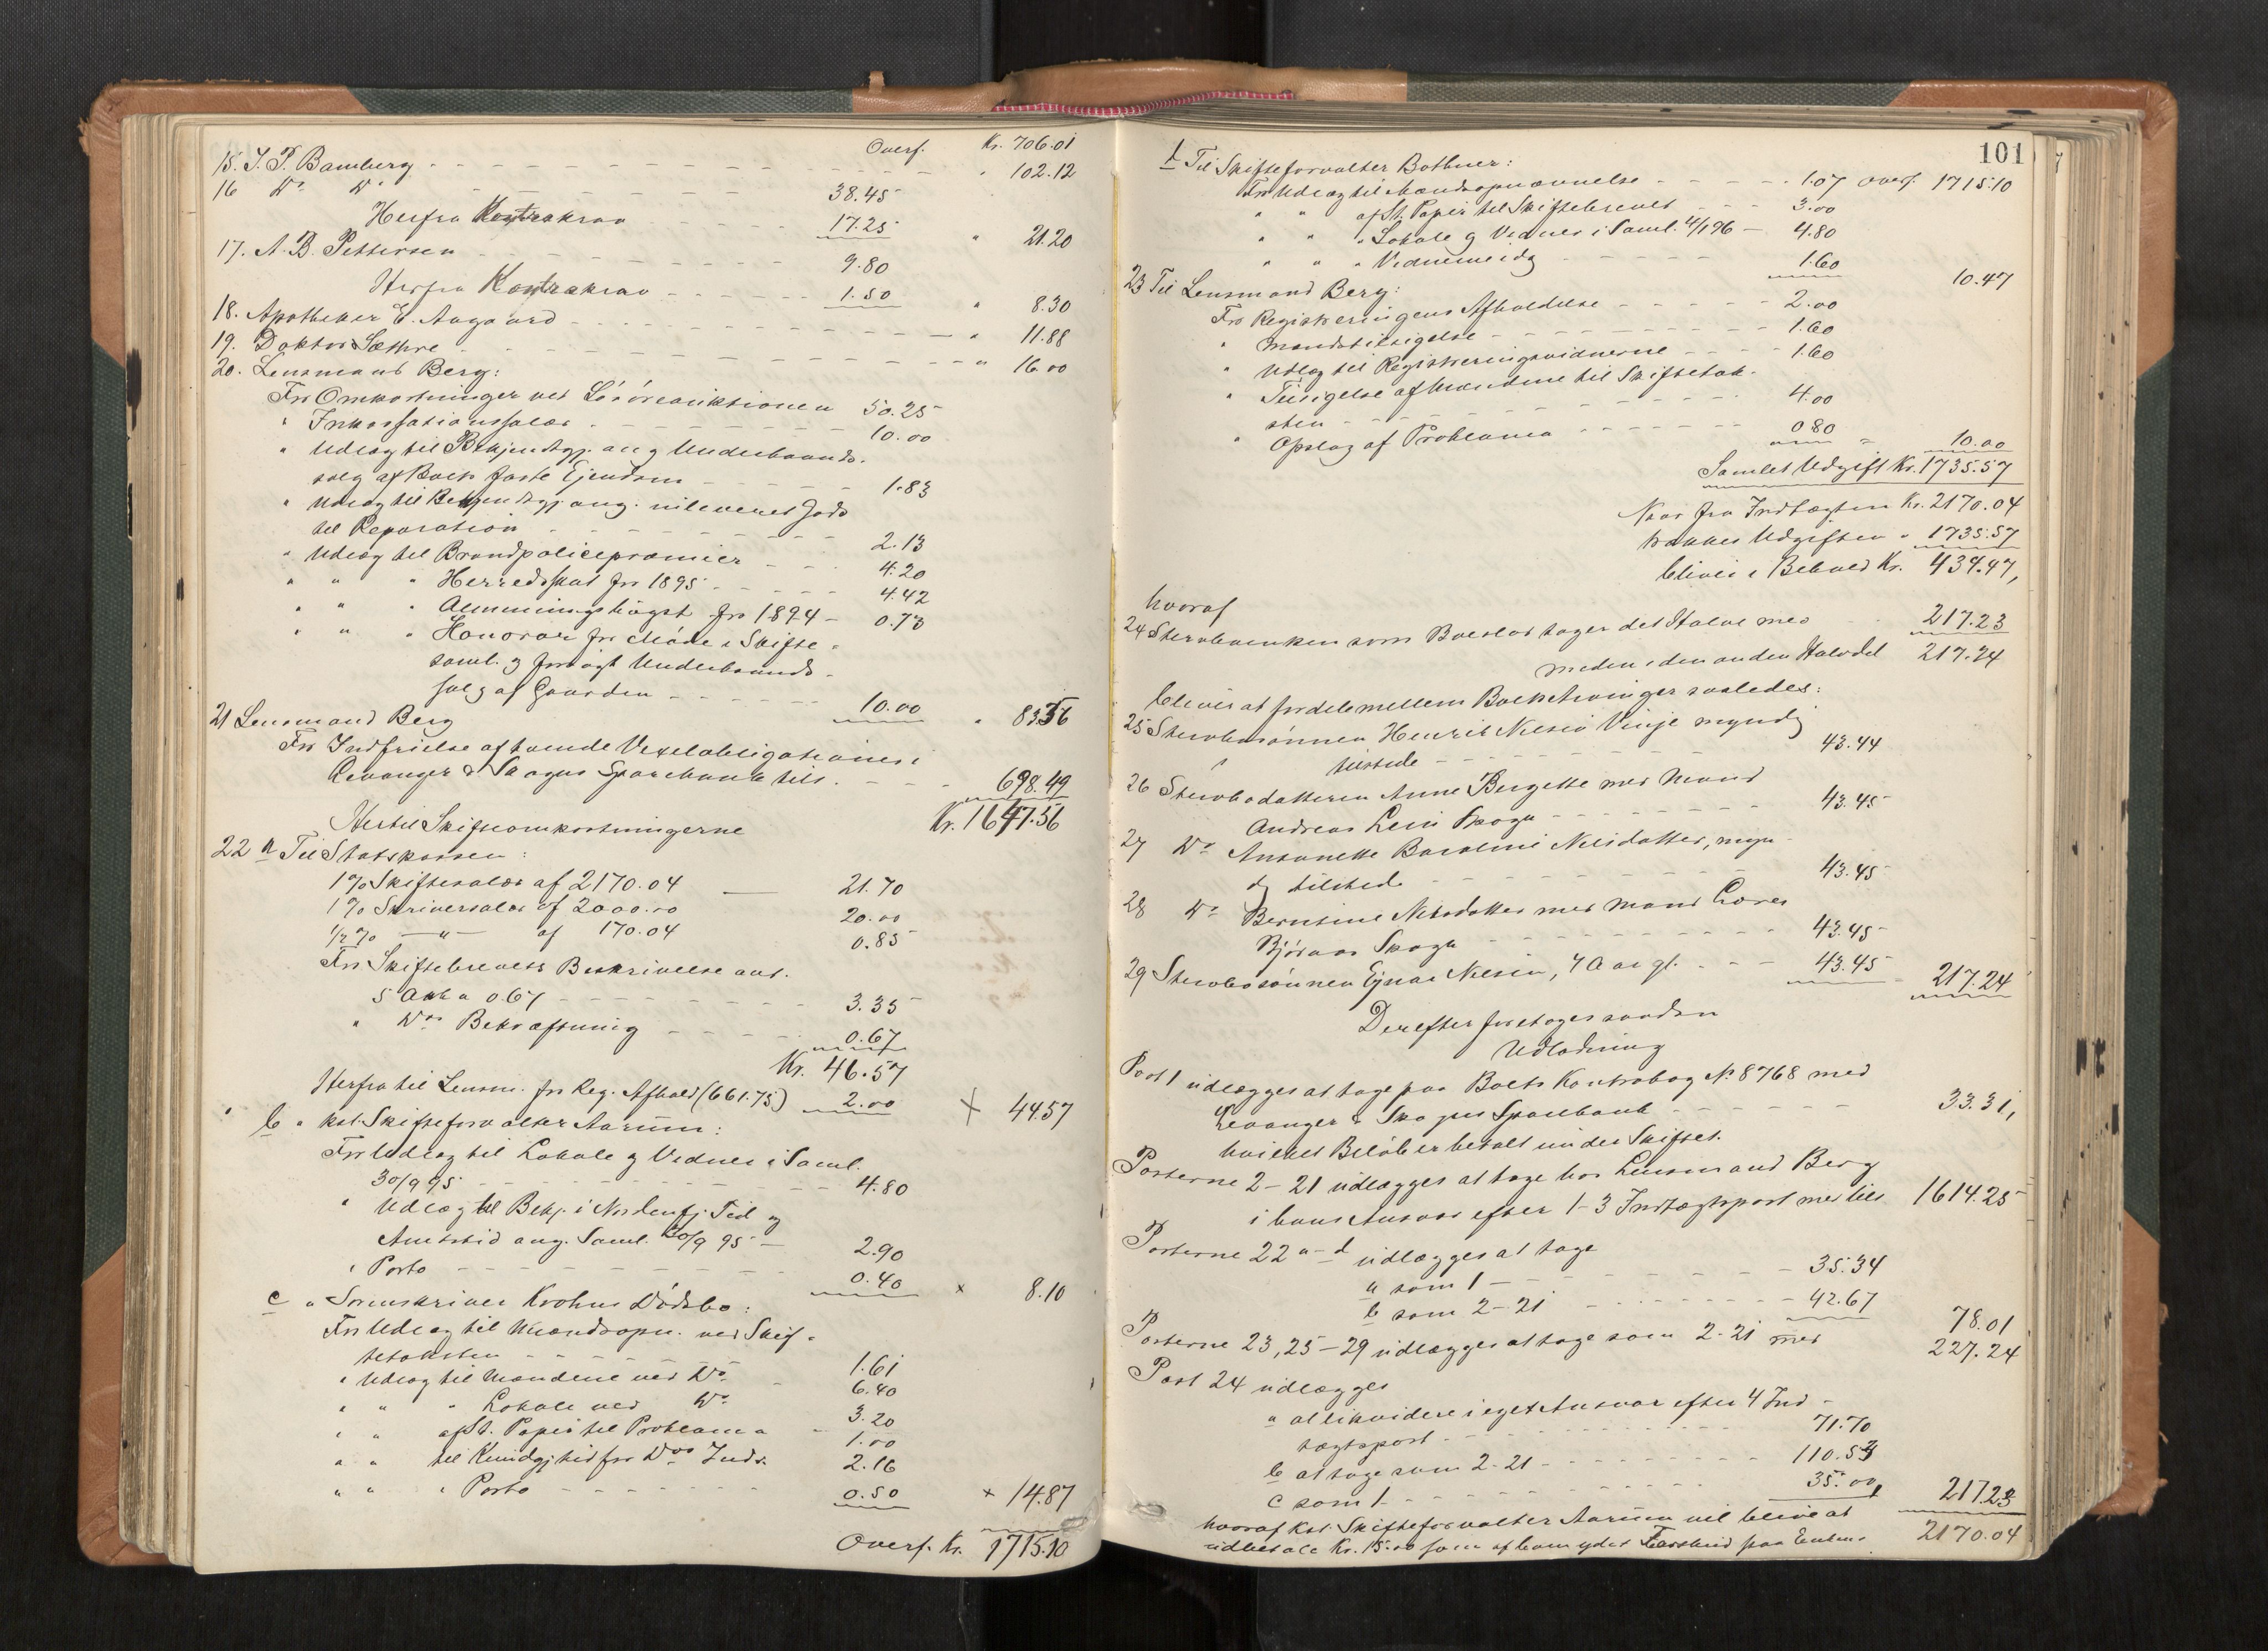 Overf. Kr. 706.01
15. J. P. Bamberg - - - " 102.12
16 Do Do - - - 38.45
Herfra Kontrakrav - - - 17.25 " 21.20
17. A. B. Pettersen - - - 9.80
Herfra Kontrakrav - - - 1.50 " 8.30
18. Apotheker E. Aagaard - - - " 11.88
19. Doktor Sæthre - - - " 16.00
20. Lensmand Berg:
For Omkostninger ved Lösöreauktionen 50.25
" Inkassationssalær - - - 10.00
" Udlæg til Bekjendtgj. ang Underhaands-
salg af Boets faste Ejendom - - - 1.83
" Udlæg til Bekjendtgj. ang. inleveret Gods
til Reparation - - - 2.13
" Udlæg til Brandpolicepræmier - - - 4.20
" " " Herredsskat for 1895 - - - 4.42
" " " Almenningsbögst for 1894 - 0.73
" " " Honorar for Möde i Skifte-
saml. og forsögt Underhaands-
salg af Gaarden - - - 10.00 " 83.56
21 Lensmand Berg
For Indfrielse af tvende Vexelobligationer i
Levanger & Skogns Sparebank tils. - - - 698.49
Kr. 1647.56
Hertil Skifteomkostningerne
22 a Til Statskassen:
1% Skiftesalær af 2170.04 — 21.70
1% Skriversalær af 2000.00 20.00
1/2% —"— af 170.04 0.85
For Skiftebrevets Beskrivelse ant.
5 Ark a 0.67 - - - 3.35
" Dos Bekræftning - - - 0.67
Kr. 46.57
Herfra til Lensm. for Reg. Afhold (661.75) 2.00 × 44.57
b " kst. Skifteforvalter Aarum:
For Udlæg til Lokale og Vidner i Saml.
30/9 95 - - - 4.80
" Udlæg til Bekj. i Nordenfj. Tid og
Amtstid ang. Saml. 30/9 95 — 2.90
" Porto - - - 0.40 × 8.10
c " Sorenskriver Krohns Dödsbo:
For Udlæg til Mændsopn. ved Skif-
tetaksten - - - 1.61
" Udlæg til Mændene ved Do - 6.40
" " " Lokale ved Do 3.20
" " af St. Papir til Proklama - 1.00
" " til Kundgj. tid for Dos Inds. 2.16
" " " Porto - - - 0.50 × 14.87
Overf. Kr. 1715.10
101
d Til Skifteforvalter Bothner:
For Udlæg til Mændsopnævnelse - - - 1.07 Overf. 1715.10
" " af St. Papir til Skiftebrevet - - - 3.00
" " " Lokale og Vidner i Saml. 4/1 96 — 4.80
" " " Vidner idag - - - 1.60 10.47
23 Til Lensmand Berg:
For Registreringens Afholdelse - - - 2.00
" Mændstilsigelse - - - 1.60
" Udlæg til Registreringsvidnerne - - - 1.60
" Tilsigelse af Mændene til Skiftetak-
sten - - - 4.00
" Opslag af Proklama - - - 0.80 " 10.00
Samlet Udgift Kr. 1735.57
Naar fra Indtægten Kr. 2170.04
trækkes Udgiften " 1735.57
bliver i Behold Kr. 434.47,
hvoraf
24 Sterboenken som Boeslod tager det Halve med 217.23
meden den anden Halvdel 217.24
bliver at fordele mellem Boets Arvinger saaledes:
25 Sterbosönnen Henrik Nilsen Vinje myndig
tilstede - - - 43.44
26 Sterbodatteren Anne Bergette med Mand
Andreas Lein Skogn - - - 43.45
27 Do Antonette Karoline Nilsdatter, myn-
dig tilstede - - - 43.45
28 Do Berntine Nilsdatter med Mand Lores
Björaas Skogn - - - 43.45
29 Sterbosönnen Ejnar Nilsen, 7 Aar gl. - - - 43.45 217.24
Derefter foretoges saadan
Udlodning
Post 1 udlægges at tage paa Boets Kontrabog No 8768 med
Levanger & Skogns Sparebank - - - 33.31,
hvilket Belöb er betalt under Skiftet.
Posterne 2-21 udlægges at tage hos Lensmand Berg
i hans Ansvar efter 1-3 Indtægtspost med tils 1614.25
Posterne 22 a-d udlægges at tage
a som 1 - - - 35.34
b som 2-21 - - - 42.67 78.01
Posterne 23, 25-29 udlægges at tage som 2-21 med 227.24
Post 24 udlægges
a at likvidere i eget Ansvar efter 4 Ind-
tægtspost - - - 71.70
b at tage som 2-21 - - - 110.53
c som 1 - - - 35.00, 217.23
hvoraf kst. Skifteforvalter Aarum vil blive at
udbetale Kr. 15.00 som af ham ydet Forskud paa Enkens 2170.04